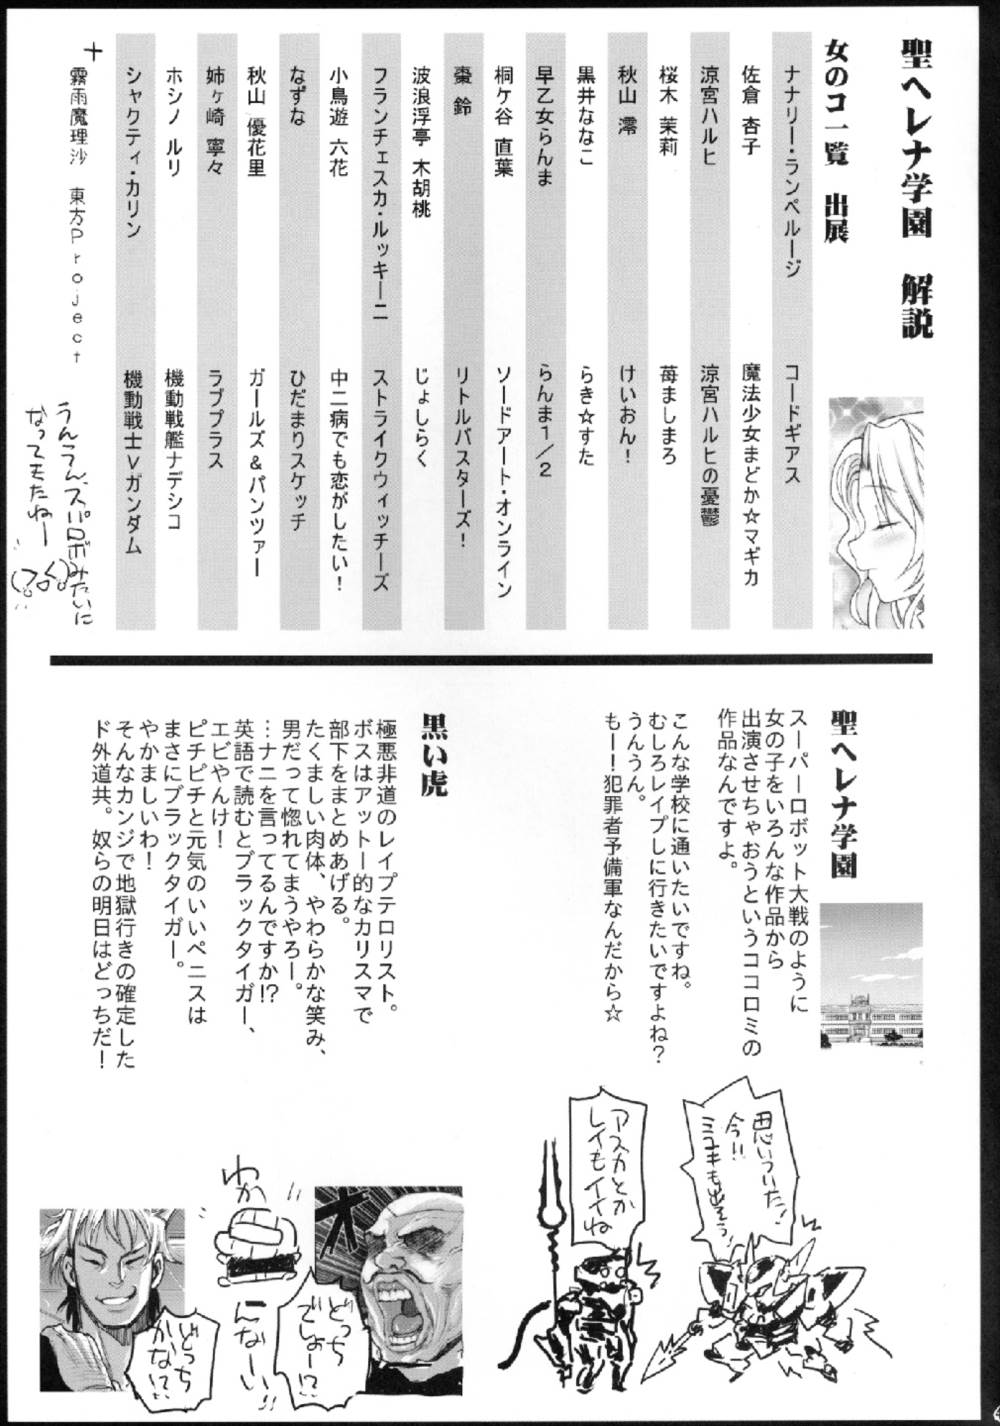 聖ヘレナ学園 解説
女のコ一覧 出展
ナナリー・ランペルージ コードギアス
佐倉 杏子 魔法少女まどか☆マギカ
涼宮ハルヒ 涼宮ハルヒの憂鬱
桜木 茉莉 苺ましまろ
秋山 澪 けいおん!
黒井ななこ らき☆すた
早乙女らんま らんま1/2
桐ケ谷 直葉 ソードアート・オンライン
棗 鈴 リトルバスターズ!
波浪浮亭 木胡桃 じょしらく
フランチェスカ・ルッキーニ ストライクウィッチーズ
小鳥遊 六花 中二病でも恋がしたい!
なずな ひだまりスケッチ
秋山 優花里 ガールズ&パンツァー
姉ヶ崎 寧々 ラブプラス
ホシノ ルリ 機動戦艦ナデシコ
シャクティ・カリン 機動戦士Vガンダム
+
霧雨魔理沙 東方Project
うんうん、スパロボみたいに
なってきたねー
聖ヘレナ学園
スーパーロボット大戦のように
女の子をいろんな作品から
出演させちゃおうというココロミの
作品なんですよ。
こんな学校に通いたいですね。
むしろレイプしに行きたいですよね?
うんうん。
もー!犯罪者予備軍なんだから☆
思いついた!
今!!
ミユキも出そう!
アスカとか
レイもイイね
黒い虎
極悪非道のレイプテロリスト。
ボスはアットー的なカリスマで
部下をまとめあげる。
たくましい肉体、やわらかな笑み、
男だって惚れてまうやろー。
…ナニを言ってるんですか!?
英語で読むとブラックタイガー、
エビやんけ!
ピチピチと元気のいいペニスは
まさにブラックタイガー。
やかましいわ!
そんなカンジで地獄行きの確定した
ド外道共。奴らの明日はどっちだ!
どっち
でしょー!?
わか
んなーい
どっち
かな!?